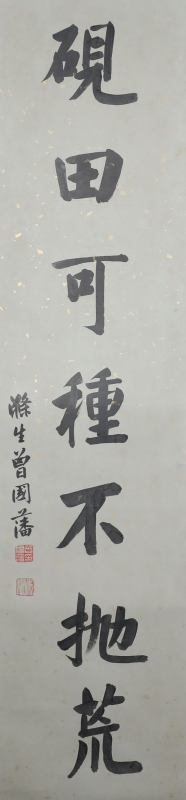 硯田可種不拋荒
滌生曾國藩